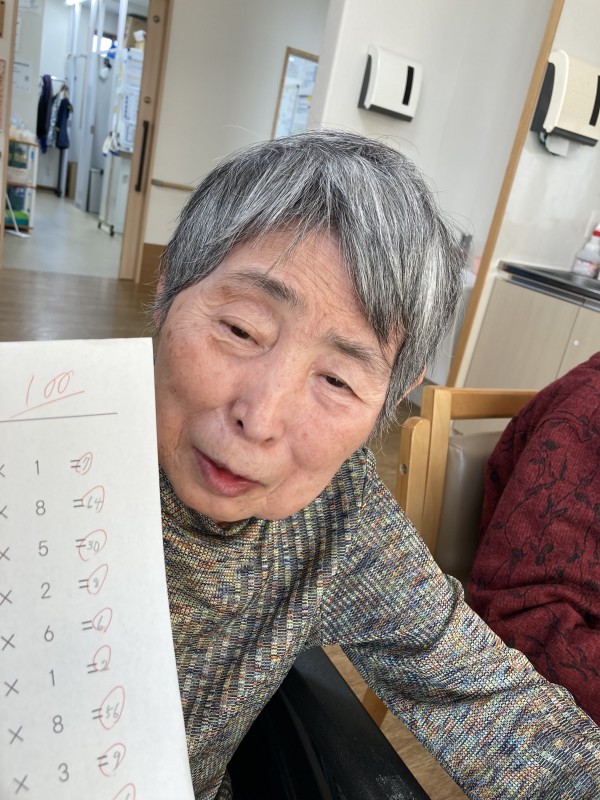 100
× 1 = 7
× 8 = 64
× 5 = 30
× 2 = 8
× 6 = 6
× 1 = 2
× 8 = 56
× 3 = 9